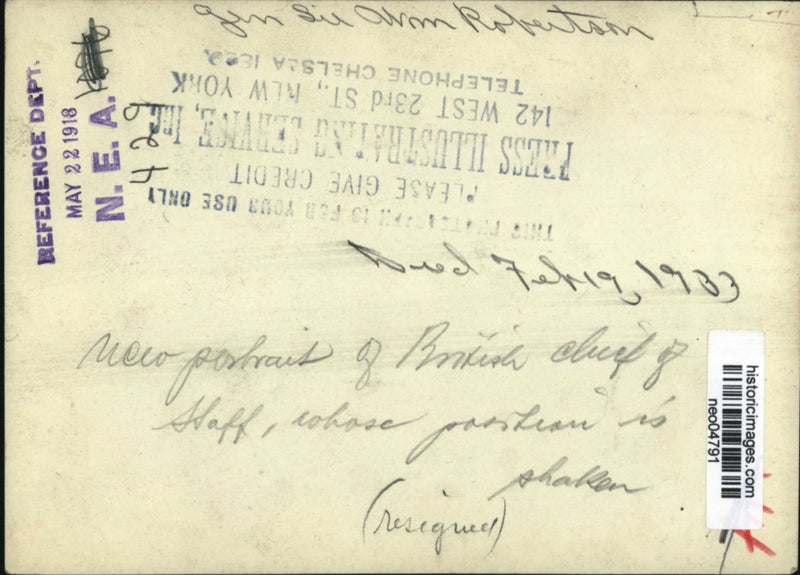 Gen Sir Wm Robertson
TELEPHONE CHELSEA
142 WEST 23rd ST., NEW YORK
PRESS ILLUSTRATING SERVICE, INC.
PLEASE GIVE CREDIT
THIS PHOTOGRAPH IS FOR YOUR USE ONLY
REFERENCE DEPT.
MAY 22 1918
N. E. A.
429
Died Feb 19, 1933
New portrait of British chief of
staff, whose position is
shaken
(resigned)
historicimages.com
neo04791